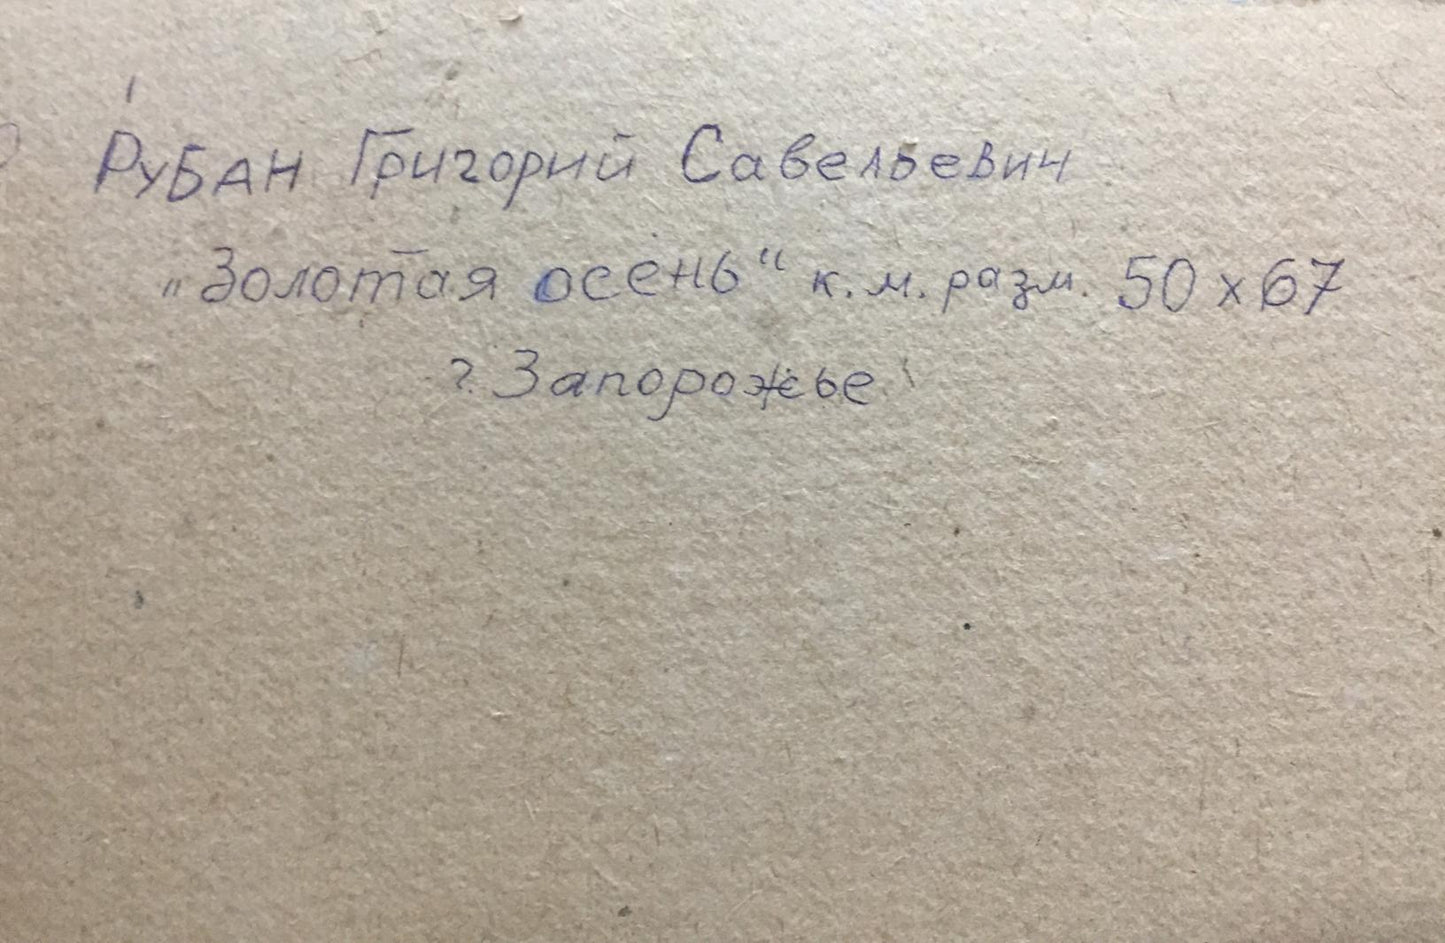 Рубан Григорий Савельевич
„Золотая осень“ к.м. разм. 50 x 67
г. Запорожье